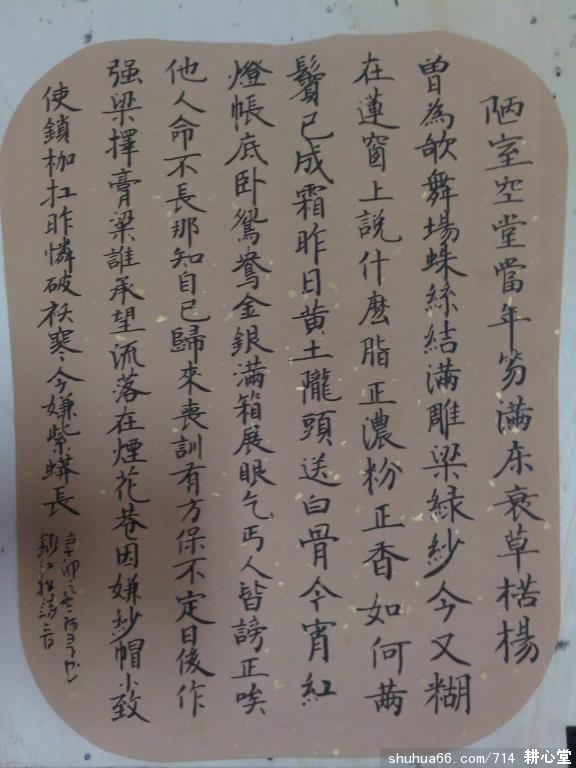 陋室空堂當年笏满床衰草楛楊
曾為歌舞場蛛絲結满雕梁緑紗今又糊
在蓮窗上說什麽脂正濃粉正香如何两
鬢已成霜昨日黄土隴頭送白骨今宵紅
燈帳底卧鴛鴦金銀满箱展眼乞丐人皆謗正唉
他人命不長那知自己歸來喪訓有方保不定日後作
强梁擇膏梁誰承望流落在煙花巷因嫌紗帽小致
使鎖枷扛昨憐破袄寒今嫌紫蟒長
辛卯之
shuhua66.com/714 耕心堂